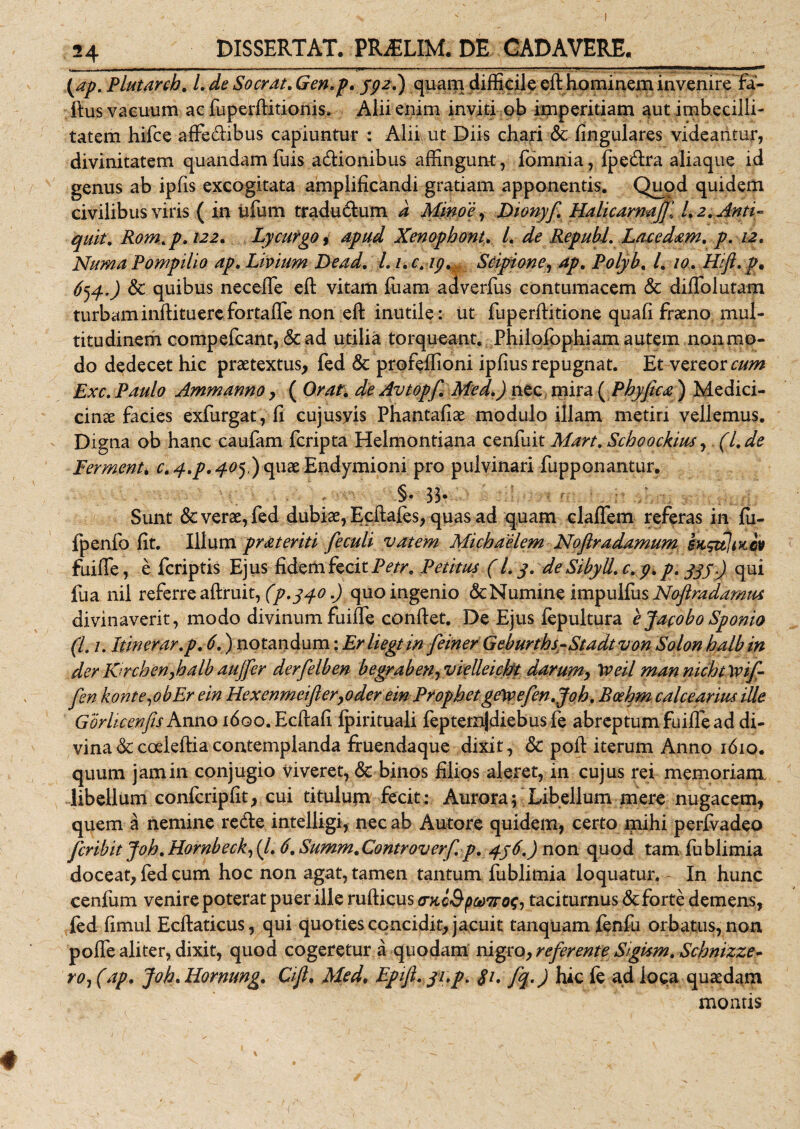 24 DISSERTAT. PRÆLIM. DE CADAVERE.
(ap. Plutarch. l. de Socrat. Gen. p. 592.) quam difficile est hominem invenire fa-
stus vacuum ac superstitionis. Alii enim inviti ob imperitiam aut imbecilli-
tatem hisce affectibus capiuntur : Alii ut Diis chari & singulares videantur,
divinitatem quandam suis actionibus affingunt, somnia, spectra aliaque id
genus ab ipsis excogitata amplificandi gratiam apponentis. Quod quidem
civilibus viris ( in usum traductum a Minoe, Dionys. Halicarnass. l. 2. Anti-
quit. Rom. p. 122. Lycurgo, apud Xenophont. l. de Republ. Lacedæm. p. 12.
Numa Pompilio ap. Livium Dead. l. 1. c. 19. Scipione, ap. Polyb. l. 10. Hist. p.
654.) & quibus necesse est vitam suam adversus contumacem & dissolutam
turbam instituere fortasse non est inutile: ut superstitione quasi fræno mul-
titudinem compescant, & ad utilia torqueant. Philosophiam autem non mo-
do dedecet hic prætextus, sed & professioni ipsius repugnat. Et vereor cum
Exc. Paulo Ammanno, ( Orat. de Avtops. Med.) nec mira ( Physicæ ) Medici-
cinæ facies exsurgat, si cujusvis Phantasiæ modulo illam metiri vellemus.
Digna ob hanc causam scripta Helmontiana censuit Mart. Schoockius, (l. de
Ferment. c. 4. p. 405.) quæ Endymioni pro pulvinari supponantur.
§. 33.
Sunt & veræ, sed dubiæ, Ecstases, quas ad quam classem referas in su-
spenso sit. Illum præteriti seculi vatem Michaëlem Nostradamum
fuisse, è scriptis Ejus fidem fecit Petr. Petitus (l. 3. de Sibyll. c. 9. p. 335.) qui
sua nil referre astruit, (p. 340.) quo ingenio & Numine impulsus Nostradamus
divinaverit, modo divinum fuisse constet. De Ejus sepultura è Jacobo Sponio
(l. 1. Itinerar. p. 6.) notandum : Er liegt in seiner Geburths-Stadt von Solon halb in
der Kirchen, halb ausser derselben begraben, vielleicht darum, weil man nicht wis-
sen konte, ob Er ein Hexenmeister, oder ein Prophet gewesen. Joh. Bœhm calcearius ille
Görlicensis Anno 1600. Ecstasi spirituali septem diebus se abreptum fuisse ad di-
vina & cœlestia contemplanda fruendaque dixit, & post iterum Anno 1610.
quum jam in conjugio viveret, & binos filios aleret, in cujus rei memoriam
libellum conscripsit, cui titulum fecit: Aurora; Libellum mere nugacem,
quem à nemine recte intelligi, nec ab Autore quidem, certo mihi persvadeo
scribit Joh. Hornbeck, (l. 6. Summ. Controvers. p. 456.) non quod tam sublimia
doceat, sed cum hoc non agat, tamen tantum sublimia loquatur. In hunc
censum venire poterat puer ille rusticus σκύθρωπος, taciturnus & forte demens,
sed simul Ecstaticus, qui quoties concidit, jacuit tanquam sensu orbatus, non
posse aliter, dixit, quod cogeretur à quodam nigro, referente Sigism. Schnizze-
ro, (ap. Joh. Hornung. Cist. Med. Epist. 31. p. 81. sq.) hic se ad loca quædam
montis